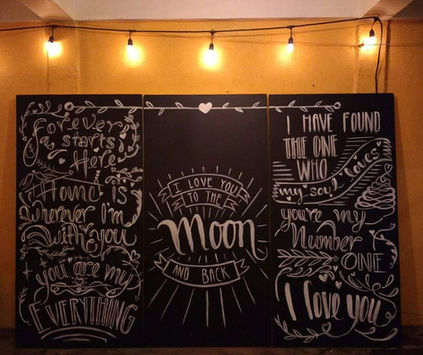 Forever
starts
Here
Home is
wherever I'm
with you
you are my
EVERYTHING
I LOVE YOU
TO THE
Moon
AND BACK
I HAVE FOUND
THE ONE
WHO
my soul loves
you're my
Number
ONE
I love you